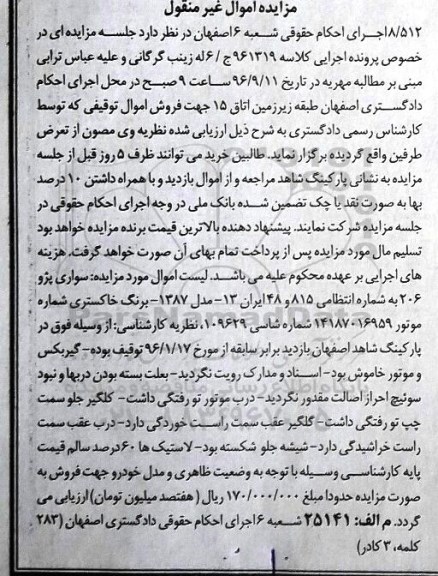 مزایده اموال غیر منقول
۸/۵۱۲ اجرای احکام حقوقی شعبه ۶ اصفهان در نظر دارد جلسه مزایده ای در
خصوص پرونده اجرایی کلاسه ۹۶۱۳۱۹ج/۶ له زینب گرگانی و علیه عباس ترابی
مبنی بر مطالبه مهریه در تاریخ ۹۶/۹/۱۱ ساعت ۹ صبح در محل اجرای احکام
دادگستری اصفهان طبقه زیرزمین اتاق ۱۵ جهت فروش اموال توقیفی که توسط
کارشناس رسمی دادگستری به شرح ذیل ارزیابی شده نظریه وی مصون از تعرض
طرفین واقع گردیده برگزار نماید. طالبین خرید می توانند ظرف ۵ روز قبل از جلسه
مزایده به نشانی پارکینگ شاهد مراجعه و از اموال بازدید و با همراه داشتن ۱۰ درصد
بها به صورت نقد یا چک تضمین شده بانک ملی در وجه اجرای احکام حقوقی در
جلسه مزایده شرکت نمایند. پیشنهاد دهنده بالاترین قیمت برنده مزایده خواهد بود
تسلیم مال مورد مزایده پس از پرداخت تمام بهای آن صورت خواهد گرفت. هزینه
های اجرایی بر عهده محکوم علیه می باشد. لیست اموال مورد مزایده: سواری پژو
۲۰۶ به شماره انتظامی ۸۱۵ و ۴۸ ایران ۱۳- مدل ۱۳۸۷- برنگ خاکستری شماره
موتور ۱۴۱۸۷۰۱۶۹۵۹ شماره شاسی ۱۰۹۶۲۹. نظریه کارشناسی: از وسیله فوق در
پارکینگ شاهد اصفهان بازدید برابر سابقه از مورخ ۹۶/۱/۱۷ توقیف بوده- گیربکس
و موتور خاموش بود- اسناد و مدارک رویت نگردید- بعلت بسته بودن دربها و نبود
سوئیچ احراز اصالت مقدور نگردید- درب موتور تو رفتگی داشت- گلگیر جلو سمت
چپ تو رفتگی داشت- گلگیر عقب سمت راست خوردگی دارد- درب عقب سمت
راست خراشیدگی دارد- شیشه جلو شکسته بود- لاستیک ها ۶۰ درصد سالم قیمت
پایه کارشناسی وسیله با توجه به وضعیت ظاهری و مدل خودرو جهت فروش به
صورت مزایده حدودا مبلغ ۱۷۰/۰۰۰/۰۰۰ ریال (هفتصد میلیون تومان) ارزیابی می
گردد. م الف: ۲۵۱۴۱ شعبه ۶ اجرای احکام حقوقی دادگستری اصفهان (۲۸۳
کلمه، ۳ کادر)
ParsNamadData